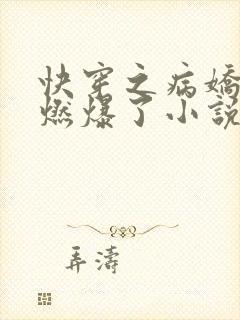 快穿之病嬌
燃爆了小說
弄濤